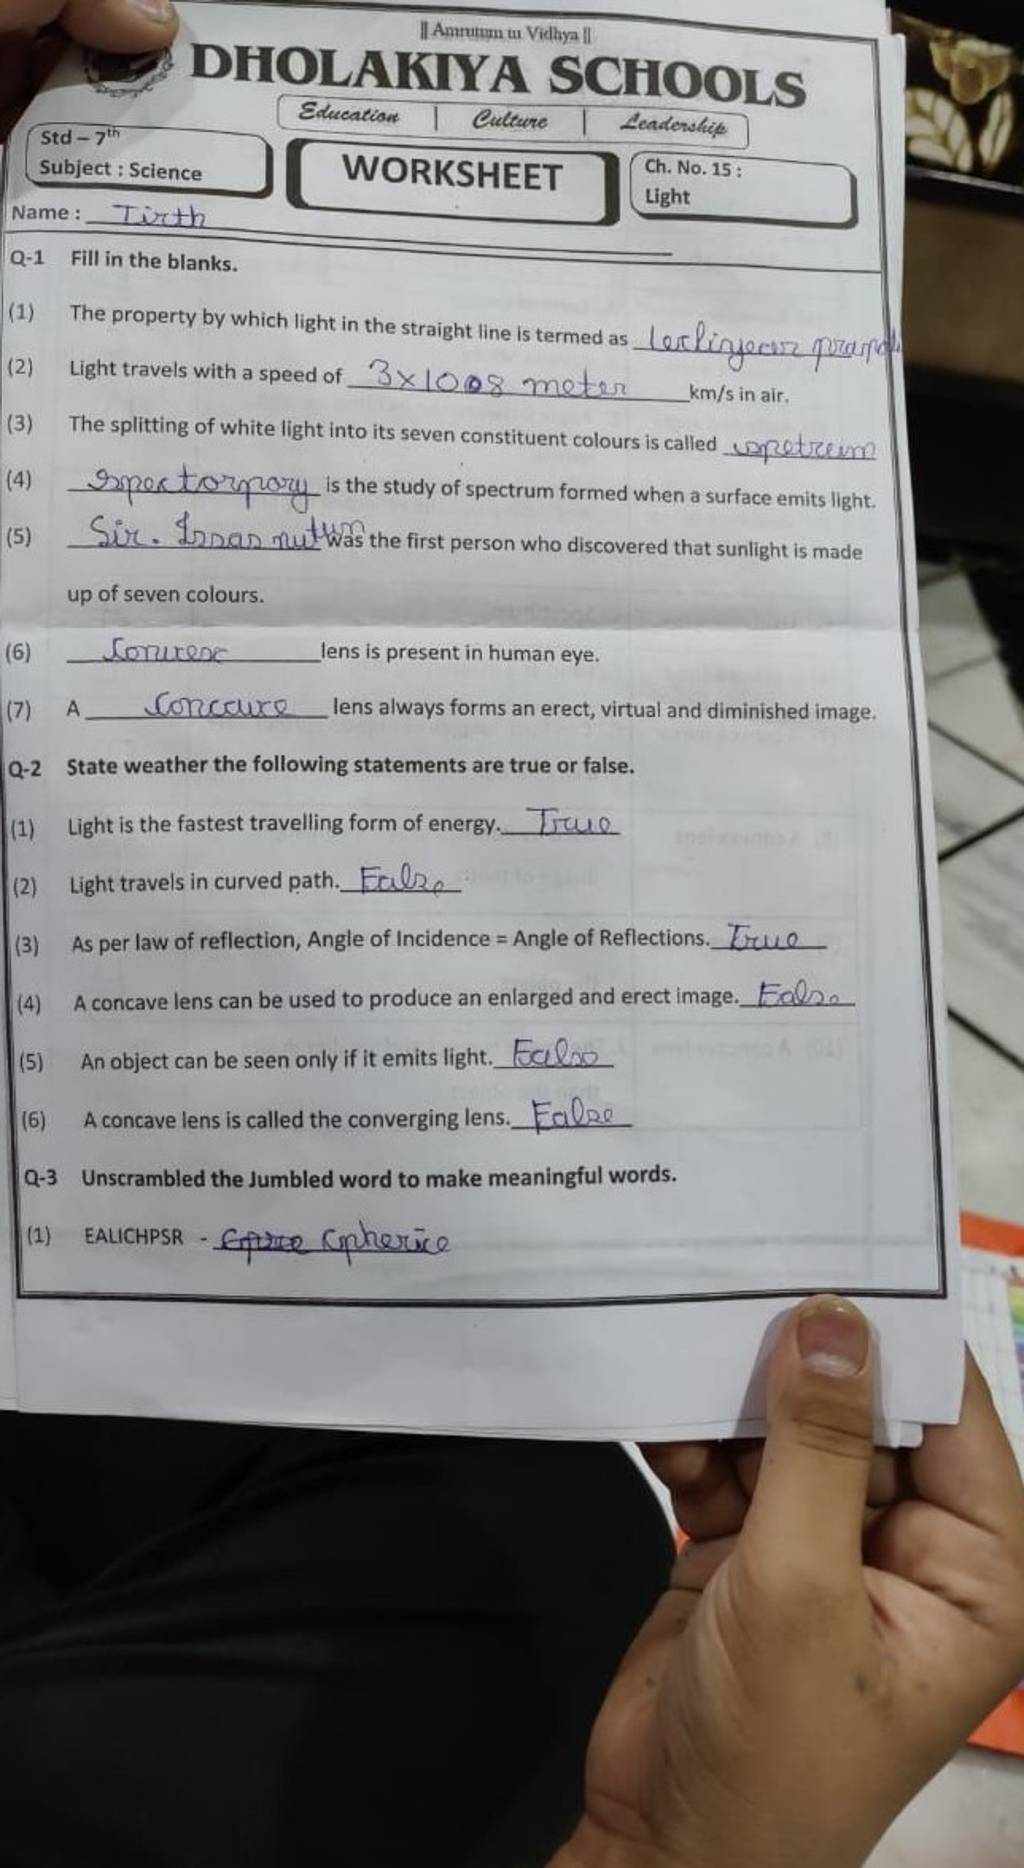 || Amrutum tu Vidhya ||
DHOLAKIYA SCHOOLS
Education | Culture | Leadership
Std – 7th
Subject : Science
WORKSHEET
Ch. No. 15 :
Light
Name : Tirth
Q-1 Fill in the blanks.
(1) The property by which light in the straight line is termed as
(2) Light travels with a speed of 3×1008 meter km/s in air.
(3) The splitting of white light into its seven constituent colours is called
(4) is the study of spectrum formed when a surface emits light.
(5) Sir. was the first person who discovered that sunlight is made
up of seven colours.
(6) lens is present in human eye.
(7) A lens always forms an erect, virtual and diminished image.
Q-2 State weather the following statements are true or false.
(1) Light is the fastest travelling form of energy. True
(2) Light travels in curved path. False
(3) As per law of reflection, Angle of Incidence = Angle of Reflections. True
(4) A concave lens can be used to produce an enlarged and erect image. False
(5) An object can be seen only if it emits light. False
(6) A concave lens is called the converging lens. False
Q-3 Unscrambled the Jumbled word to make meaningful words.
(1) EALICHPSR -